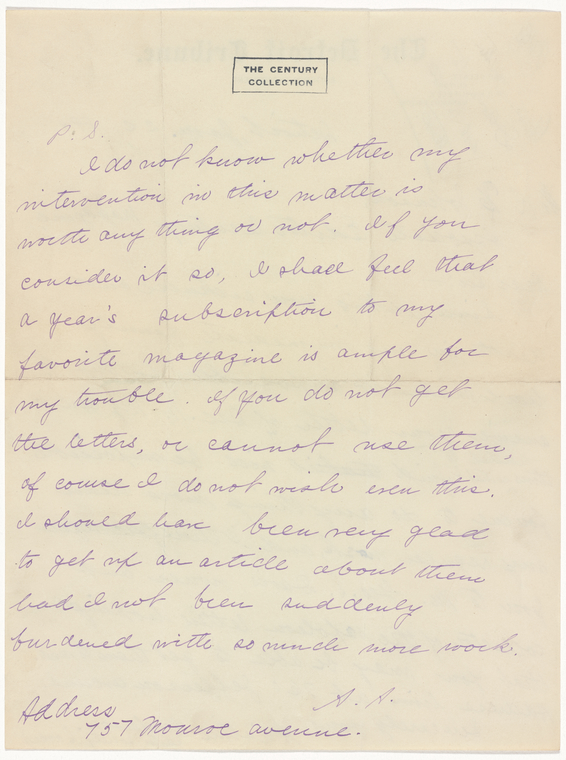 THE CENTURY
COLLECTION
P. S.
I do not know whether my
intervention in this matter is
worth any thing or not. If you
consider it so, I shall feel that
a year's subscription to my
favorite magazine is ample for
my trouble. If you do not get
the letters, or cannot use them,
of course I do not wish even this.
I should have been very glad
to get up an article about them
had I not been suddenly
burdened with so much more work.
Address
757 Monroe avenue.